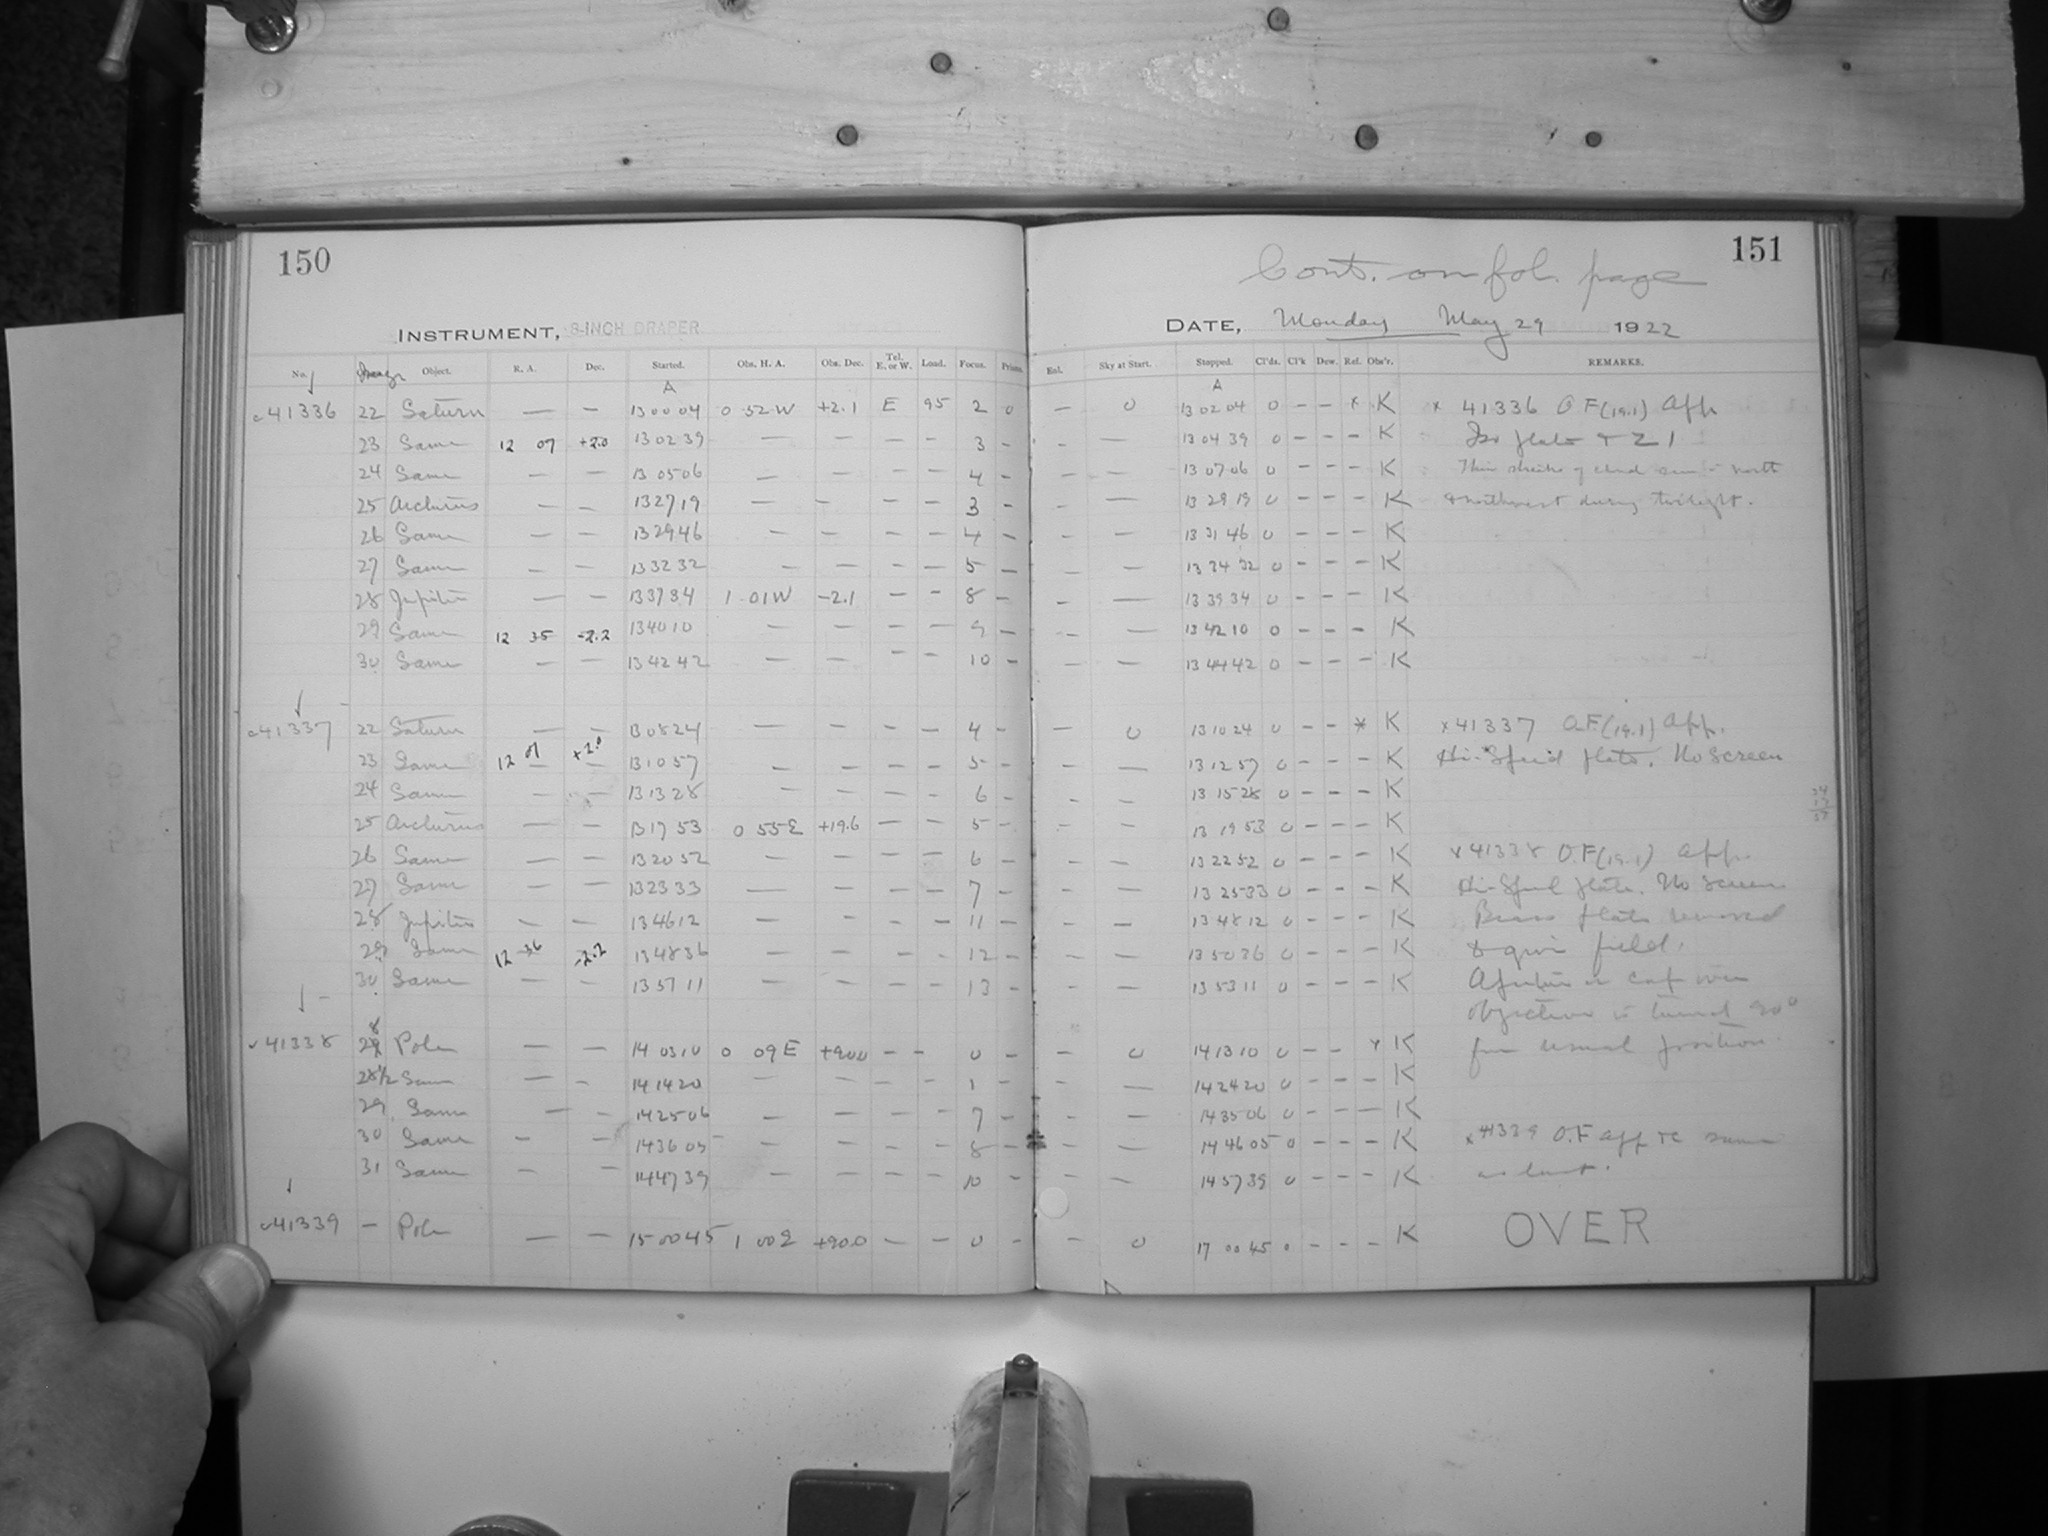 150
151
Cont. on fol. page
INSTRUMENT, 8-INCH DRAPER
DATE, Monday May 29 1922
No. Image Object. R. A. Dec. Started. Obs. H. A. Obs. Dec. Tel. E. or W. Load. Focus. Prisms. Enl. Sky at Start. Stopped. Cl'ds. Cl'k Dew. Ref. Obs'r. REMARKS.
A A
c41336 22 Saturn — — 13 00 04 0 52 W +2.1 E 95 2 0 — 0 13 02 04 0 – – x K x 41336 O F (19.1) App
23 Same 12 07 +2.0 13 02 39 — — – – 3 – – — 13 04 39 0 – – – K Iso plate + Z 1
24 Same — — 13 05 06 — — – – 4 – – — 13 07 06 0 – – – K Thin streaks of cloud seen in north
25 Arcturus — — 13 27 19 — – – – 3 – – — 13 29 19 0 – – – K & northwest during twilight.
26 Same — — 13 29 46 — – – – 4 – – – 13 31 46 0 – – – K
27 Same — — 13 32 32 — – – – 5 – – – 13 34 32 0 – – – K
28 Jupiter — — 13 37 34 1 01 W –2.1 – – 8 – – — 13 39 34 0 – – – K
29 Same 12 35 –2.2 13 40 10 — — – – 9 – – — 13 42 10 0 – – – K
30 Same — — 13 42 42 — – – – 10 – – — 13 44 42 0 – – – K
c41337 22 Saturn — — 13 08 24 — – – – 4 – — 0 13 10 24 0 – – * K x 41337 O.F.(19.1) App.
23 Same 12 07 +2.0 13 10 57 – – – – 5 – – — 13 12 57 0 – – – K Hi-Speed plate. No Screen
24 Same — – 13 13 28 – – – – 6 – – – 13 15 28 0 – – – K
25 Arcturus — — 13 17 53 0 55 E +19.6 – – 5 – – — 13 19 53 0 – – – K
26 Same — — 13 20 52 — – – – 6 – – – 13 22 52 0 – – – K x 41338 O.F (19.1) App.
27 Same — — 13 23 33 — – – – 7 – – – 13 25 33 0 – – – K Hi-Speed plate. No Screen
28 Jupiter – – 13 46 12 – – – – 11 – – – 13 48 12 0 – – – K Brass plate removed
29 Same 12 36 –2.2 13 48 36 — – – – 12 – – – 13 50 36 0 – – – K & field.
30 Same — – 13 57 11 – – – – 13 – – — 13 53 11 0 – – – K Aperture in cap over
objective is turned 90°
v 41338 28 Pole — — 14 03 10 0 09 E +90.0 – – 0 – – 0 14 13 10 0 – – x K from usual position.
28 1/2 Same — – 14 14 20 – – – – 1 – – — 14 24 20 0 – – – K
29 Same — – 14 25 06 – – – – 7 – – – 14 35 06 0 – – — K
30 Same – — 14 36 05 – – – – 8 – – – 14 46 05 0 – – – K x 41339 O.F App etc same
31 Same – — 14 47 39 – – – – 10 – – – 14 57 39 0 – – – K as last.
c41339 – Pole — — 15 00 45 1 00 E +90.0 – – 0 – – 0 17 00 45 0 – – – K OVER